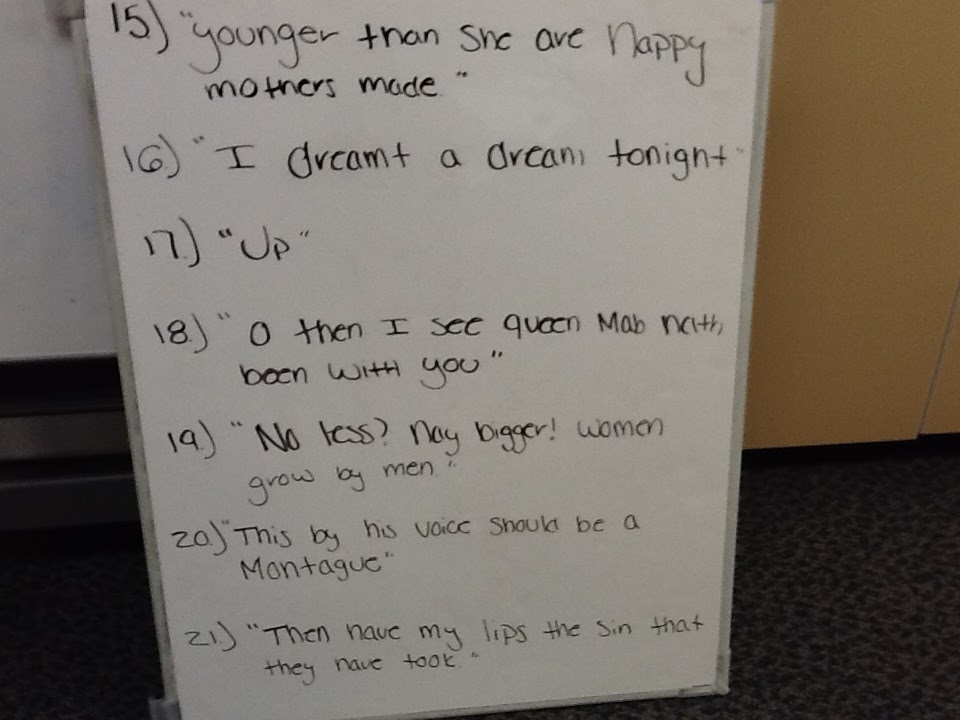 15) "younger than she are happy
mothers made."
16.) "I dreamt a dream tonight"
17.) "Up"
18.) "O then I see queen Mab hath
been with you"
19.) "No less? Nay bigger! women
grow by men."
20.) "This by his voice should be a
Montague"
21.) "Then have my lips the sin that
they have took."